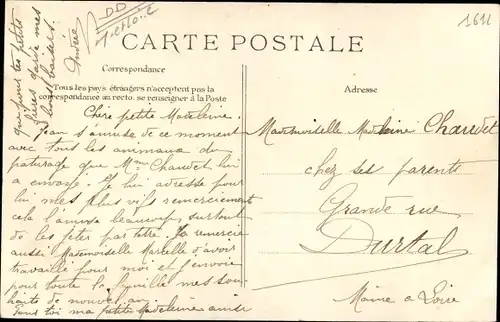 1611
CARTE POSTALE
Correspondance
Tous les pays étrangers n'acceptent pas la
correspondance au recto. se renseigner à la Poste
Adresse
Chère petite Madeleine.
Jean s'amuse de ce moment
avec tous les animaux du
paturage que Mme Chauvet lui
a envoyé. Je lui adresse pour
lui mes plus vifs remerciements
cela l'amuse beaucoup, surtout
de les jeter par terre. Je remercie
aussi Mademoiselle Marcelle d'avoir
travaillé pour moi et j'envoie
pour toute la famille mes sou
haits de nouvel an
Pour toi ma petite Madeleine ainsi
que pour tes petits
frères garde mes
bons baisers.
Andrée
Mademoiselle Madeleine Chauvet
chez ses parents
Grande rue
Durtal
Maine & Loire